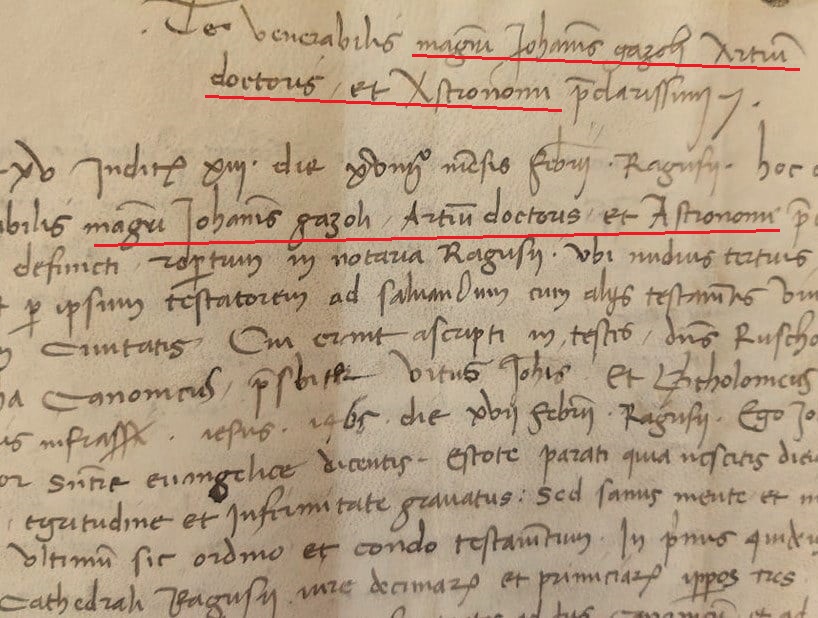 Tes venerabilis magr̄i Johanis gazoli Artiū
doctoris et Astronomi p̄clarissimi
xv Indict. xiii. die xviiiº mēsis febrii Ragusii. hoc
abilis magr̄i Johanis gazoli Artiū doctoris et Astronomi
defuncti reptum in notaria Ragusii. Vbi nudius tertius
ꝑ ipsum testatorem ad saluandum cum alijs testamtis
Ciuitatis Cui erant ascripti in testis dn̄s Ruscho
Canonicus, p̄sbiter Vitus Johis Et Bartholomeus
is infrasc. iesus. 1465 die xvii febrii Ragusii. Ego
or sūtie euangelice dicentis Estote parati quia nescitis diem
egritudine et Infirmitate grauatus: Sed sanus mente et
Vltimū sic ordino et condo testamtum. In p̄mis
Cathedrali Ragusii iure decimarꝝ et primiciarꝝ ippos tres